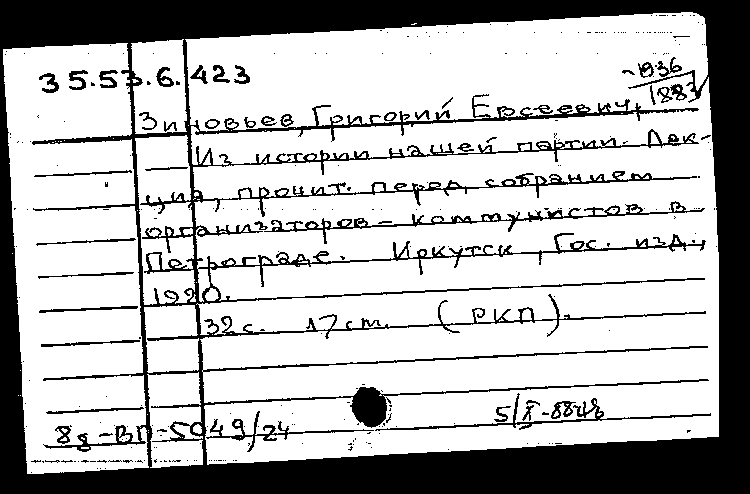 35.53.6.423
-1936
1883
Зиновьев, Григорий Евсеевич,
Из истории нашей партии. Лек-
ция, прочит. перед собранием
организаторов-коммунистов в
Петрограде. Иркутск, Гос. изд.,
1920.
32 с. 17 cm. (РКП).
8д-ВП-5049/24